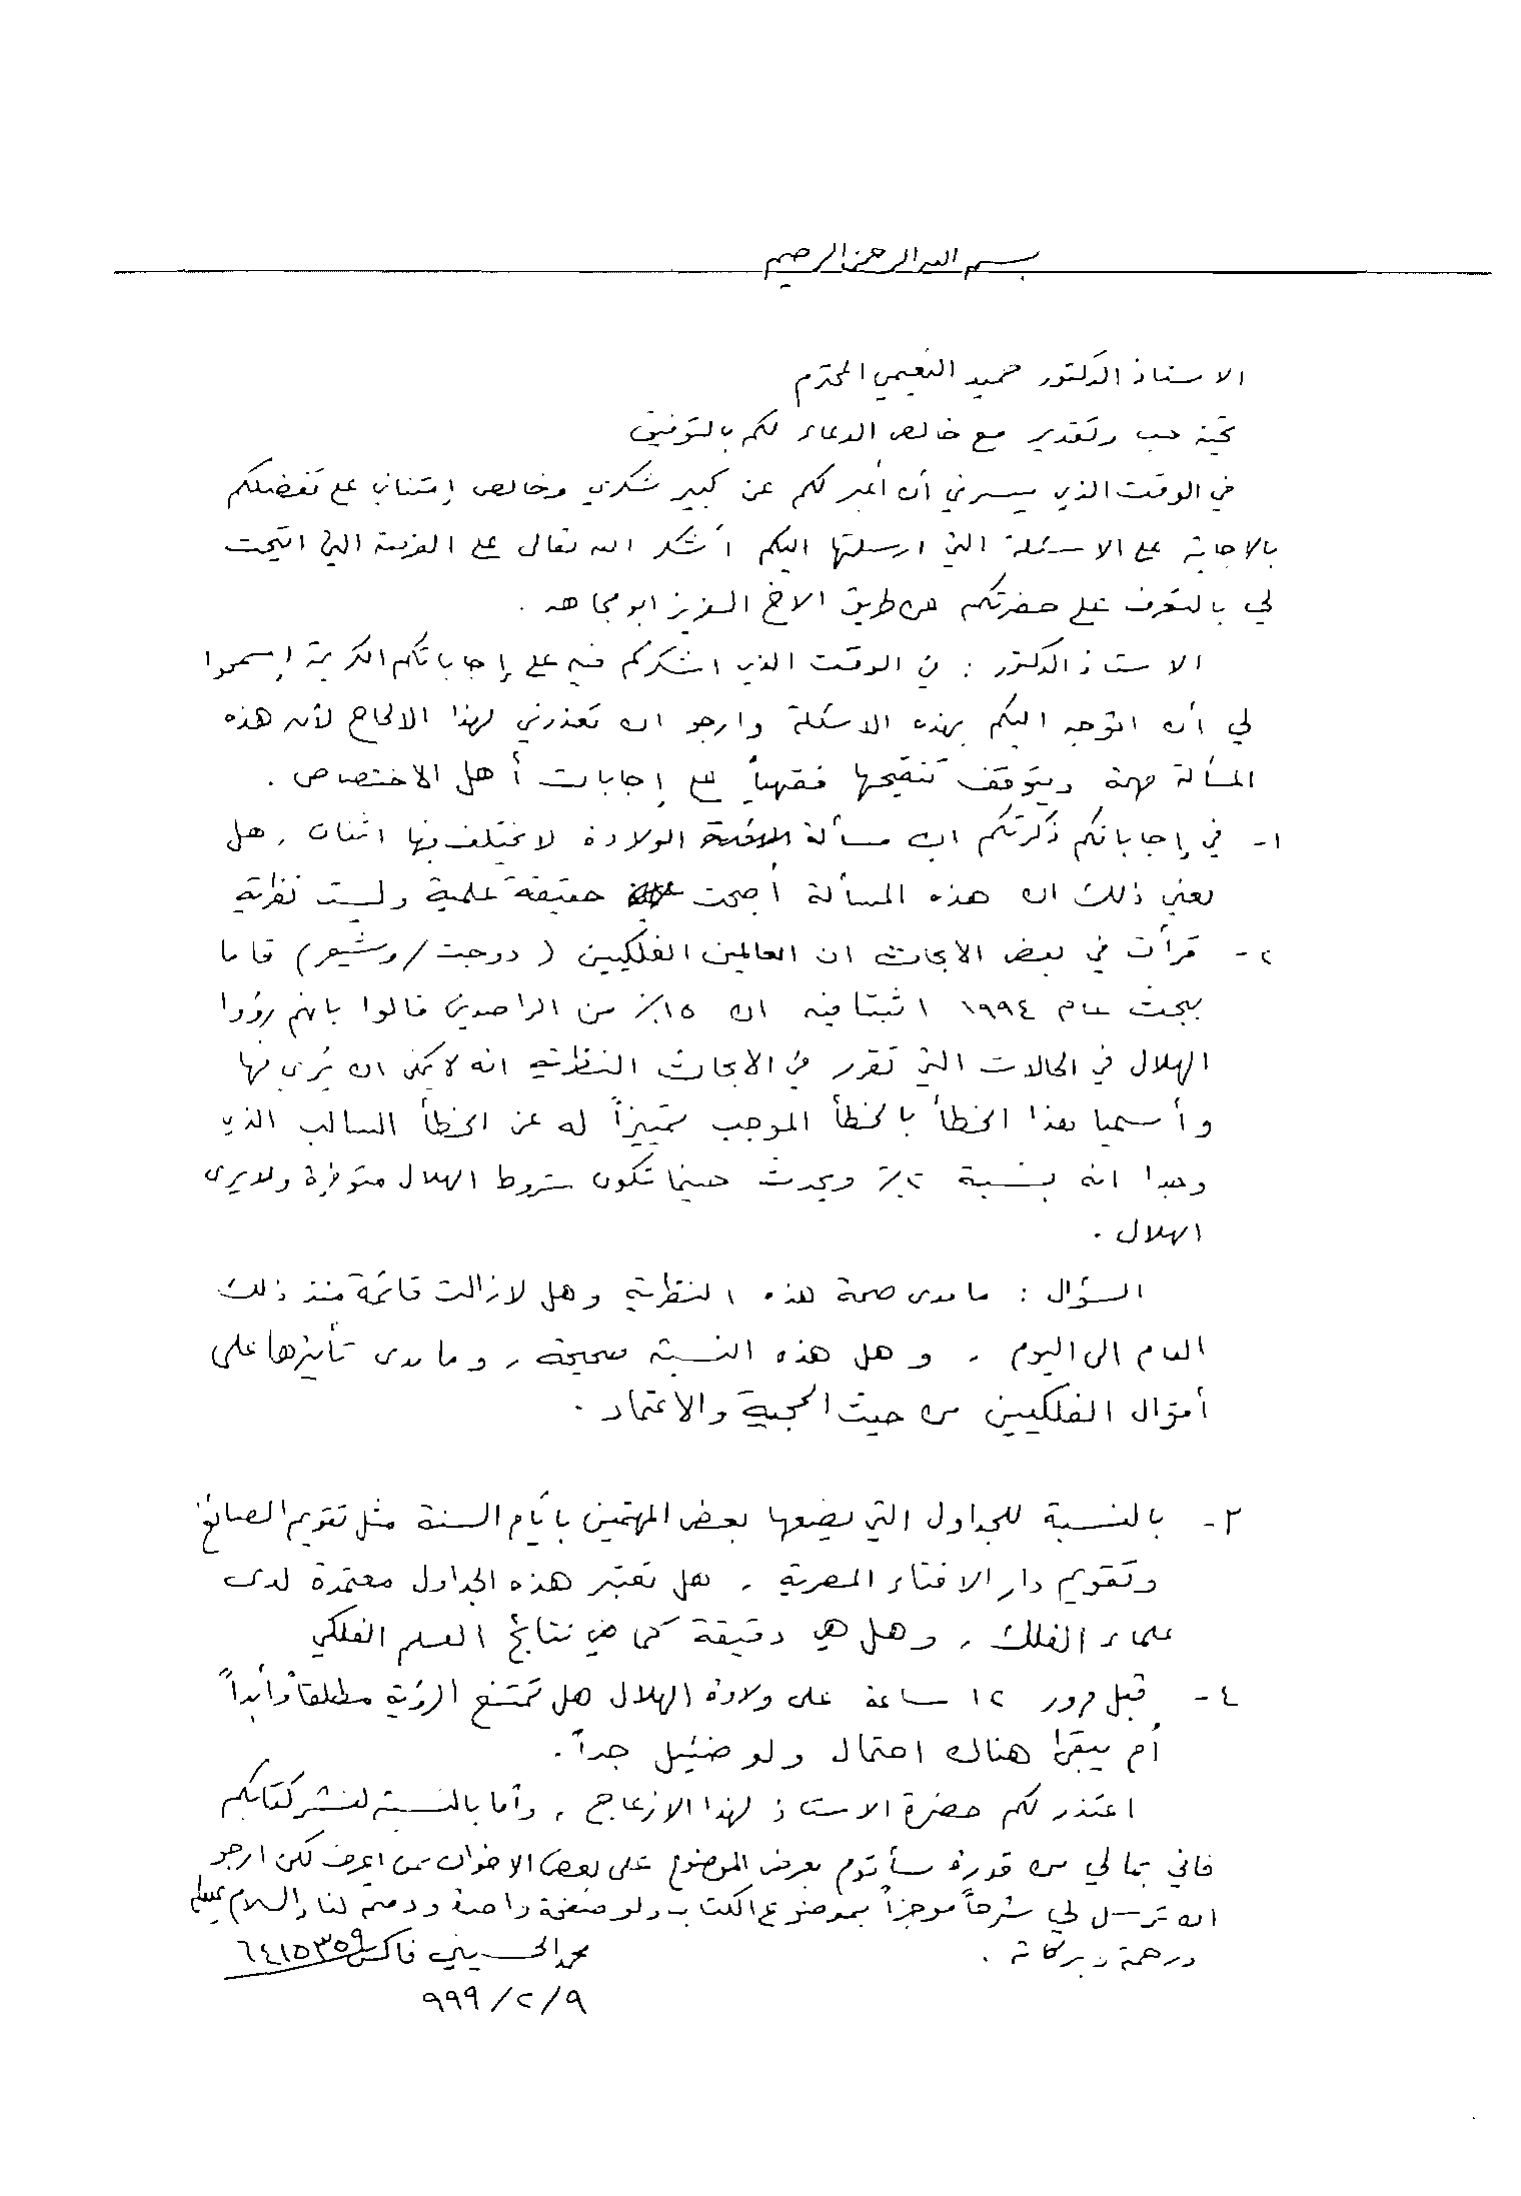 بسم الله الرحمن الرحيم
الاستاذ الدكتور حميد النعيمي المحترم
تحية حب وتقدير مع خالص الدعاء لكم بالتوفيق
في الوقت الذي يسرني أن أعبر لكم عن كبير شكري وخالص إمتناني على تفضلكم
بالاجابة على الاسئلة التي ارسلتها اليكم أشكر الله تعالى على الفرصة التي اتيحت
لي بالتعرف على حضرتكم من طريق الاخ العزيز ابو مجاهد .
الاستاذ الدكتور : في الوقت الذي اشكركم فيه على إجاباتكم الكريمة إسمحوا
لي أن اتوجه اليكم بهذه الاسئلة وارجو ان تعذرني لهذا الالحاح لأن هذه
المسألة مهمة ويتوقف تنقيحها فقهياً على إجابات أهل الاختصاص .
١- في إجاباتكم ذكرتكم ان مسألة الولادة لا يختلف فيها اثنان ، هل
يعني ذلك ان هذه المسألة أصبحت حقيقة علمية وليست نظرية
٢- قرأت في بعض الابحاث ان العالمين الفلكيين ( دوجت / وشيفر ) قاما
ببحث عام ١٩٩٤ اثبتا فيه ان ١٥٪ من الراصدين قالوا بانهم رؤوا
الهلال في الحالات التي تقرر في الابحاث النظرية انه لا يمكن ان يُرى فيها
وأسميا هذا الخطأ بالخطأ الموجب تمييزاً له عن الخطأ السالب الذي
وجدا انه بنسبة ٢٪ ويحدث حينما تكون شروط الهلال متوفرة ولا يرى
الهلال .
السؤال : ما مدى صحة هذه النظرية وهل لازالت قائمة منذ ذلك
العام الى اليوم ، وهل هذه النسبة صحيحة ، وما مدى تأثيرها على
أقوال الفلكيين من حيث الحجية والاعتماد .
٣- بالنسبة للجداول التي يضعها بعض المهتمين بأيام السنة مثل تقويم الصائغ
وتقويم دار الافتاء المصرية ، هل تعتبر هذه الجداول معتمدة لدى
علماء الفلك ، وهل هي دقيقة كما هي نتائج العلم الفلكي
٤- قبل مرور ١٢ ساعة على ولادة الهلال هل تمتنع الرؤية مطلقاً وأبداً
أم يبقى هناك احتمال ولو ضئيل جداً .
اعتذر لكم حضرة الاستاذ لهذا الازعاج ، وأما بالنسبة لنشر كتابكم
فاني بما لي من قدرة سأقوم بعرض الموضوع على بعض الاخوان ممن اعرف لكن ارجو
ان ترسل لي شرحاً موجزاً بموضوع الكتاب ولو صفحة واحدة ودمتم لنا والسلام عليكم
ورحمة وبركاته .
محمد الحسيني فاكس ٦٤١٥٣٥٩
٩/٢/٩٩٩